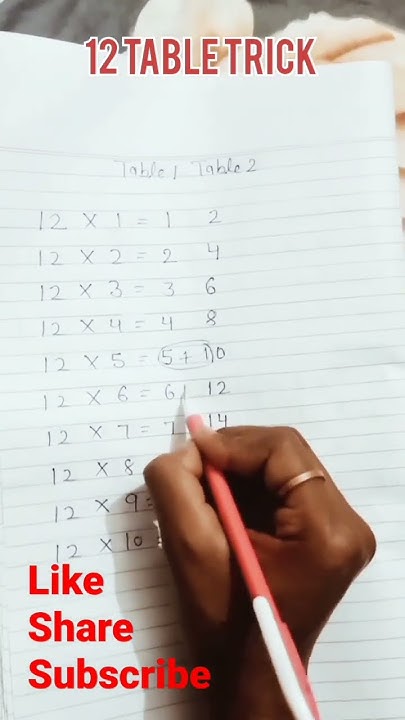 12 TABLE TRICK
Table 1 Table 2
12 X 1 = 1 2
12 X 2 = 2 4
12 X 3 = 3 6
12 X 4 = 4 8
12 X 5 = 5 + 10
12 X 6 = 6 12
12 X 7 = 7 14
12 X 8
12 X 9 =
12 X 10 =
Like
Share
Subscribe